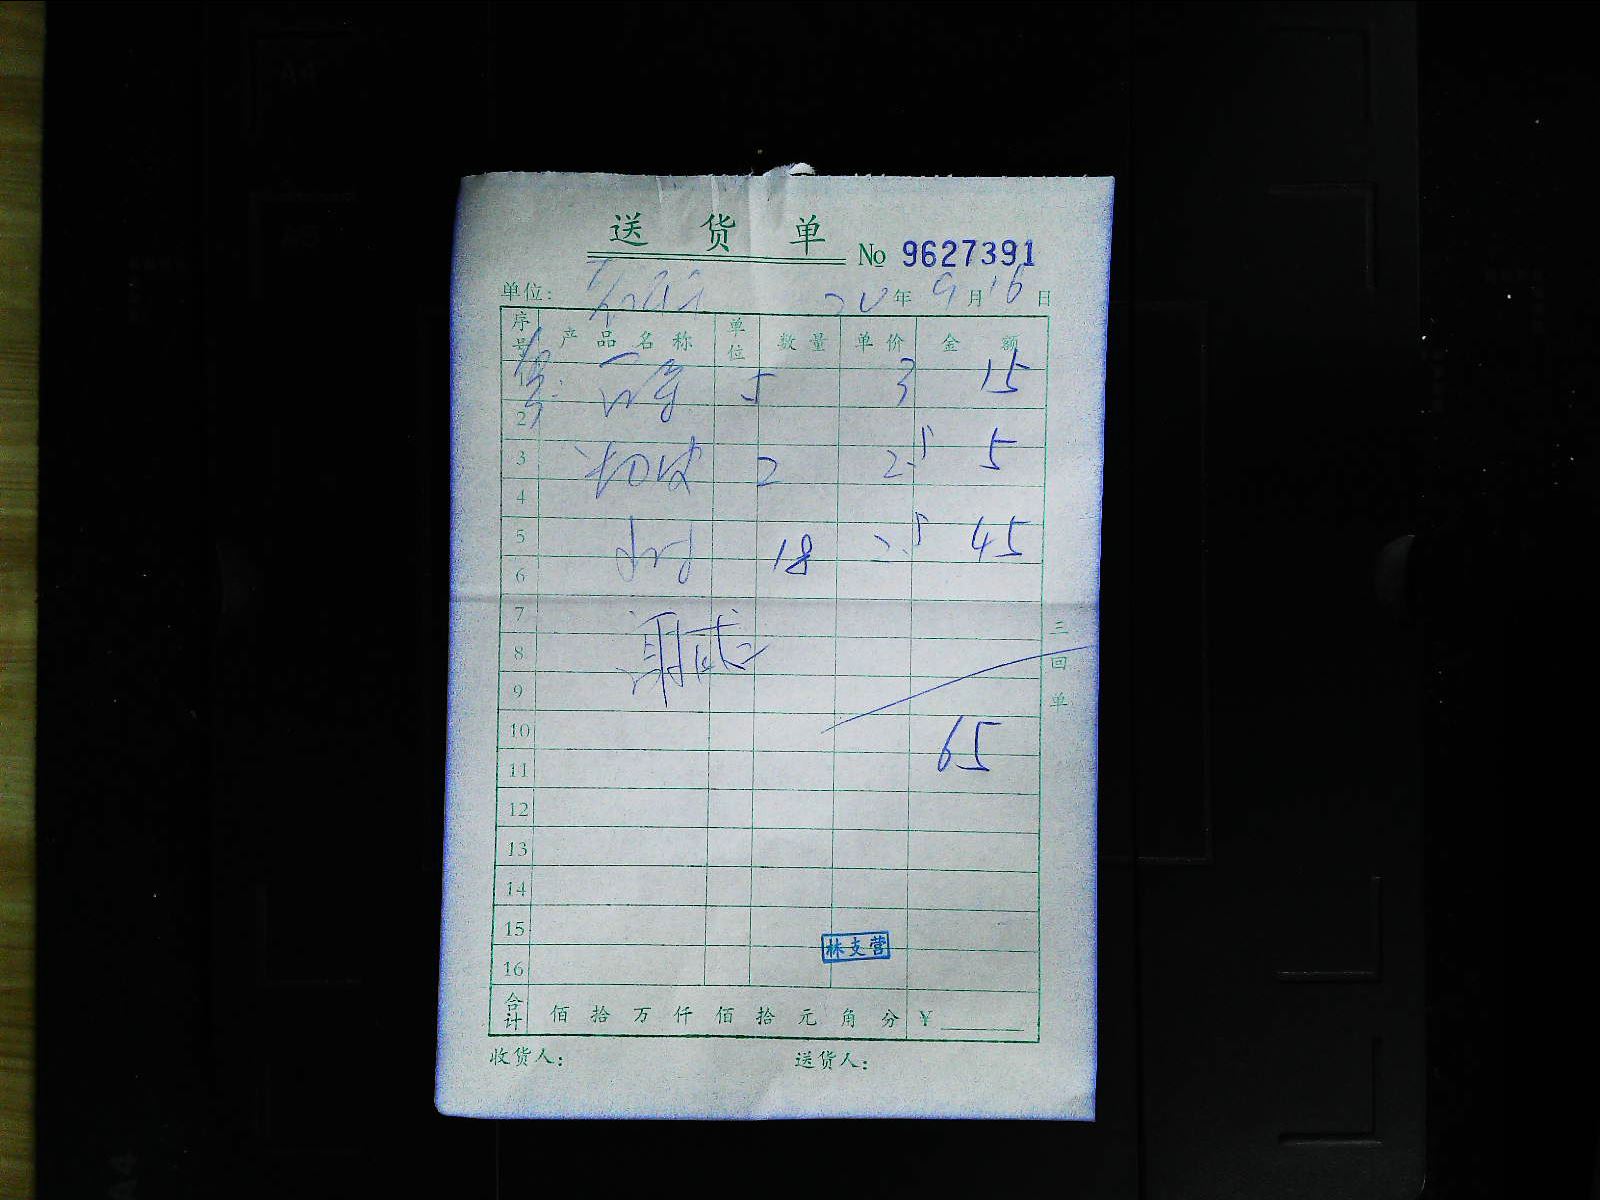 送货单
No 9627391
单位: 20年9月16日
序号 产品名称 单位 数量 单价 金额
1 5 3 15
2
3 2 2.5 5
4
5 18 2.5 45
6
7
8
9
10 65
11
12
13
14
15
16
林支营
合计 佰拾万仟佰拾元角分 ¥
收货人: 送货人:
三回单